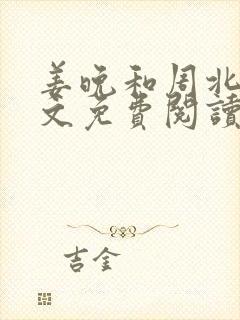 姜晚和周北
文免費閱讀
吉金